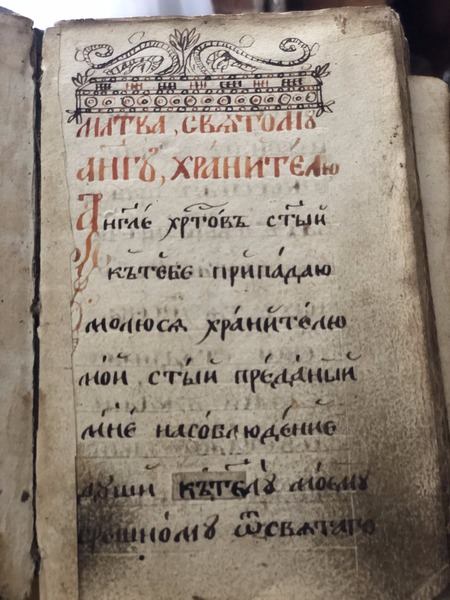 мл҃тва, свѧтомꙋ
а҆нг҃лꙋ, храни́телю
А҆́нг҃ле хрⷭ҇то́въ ст҃ы́й
къ тебѣ̀ припа́даю
молю́сѧ храни́телю
мо́й ст҃ы́й пре́даный
мнѣ̀ насоблюде́ние
дꙋши̂ кътѣлꙋ̀ моемꙋ̀
грешно́мꙋ ѿсвѧта́го